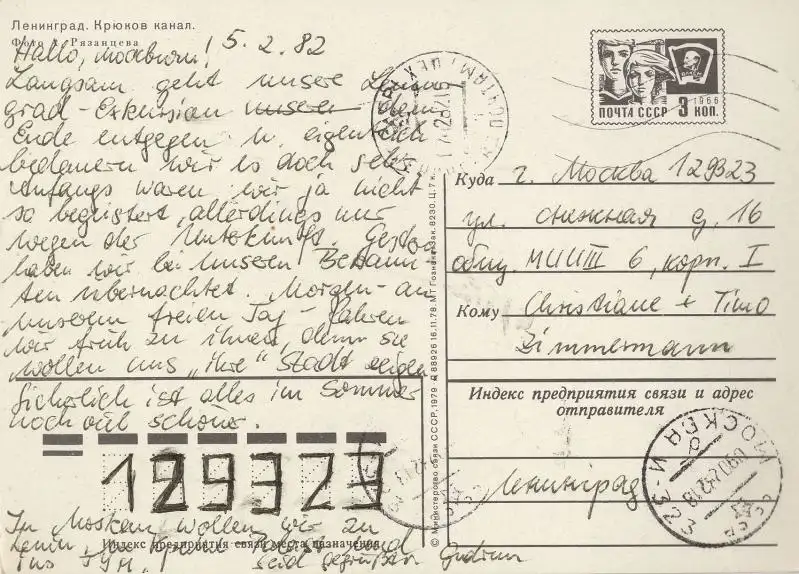 Ленинград. Крюков канал.
Фото Рязанцева
5.2.82
Hallo, москвичи!
Langsam geht unsere Lenin-
grad-Exkursion unserer dem
Ende entgegen u. eigentlich
bedauern wir es doch sehr.
Anfangs waren wir ja nicht
so begeistert, allerdings nur
wegen der Unterkunft. Gestern
haben wir bei unseren Bekann-
ten übernachtet. Morgen - an
unserem freien Tag - fahren
wir früh zu ihnen, denn sie
wollen uns "ihre" Stadt zeigen
Sicherlich ist alles im Sommer
noch viel schöner.
129323
In Moskau wollen wir zu
Lenin, ins
ins seid gegrüßt Gudrun
Индекс предприятия связи места назначения
© Министерство связи СССР, 1979 88926 16.11.78. МТ Гознака. Зак. 8230. Ц. 7 к.
ПОЧТА СССР 3 КОП.
1966
ВЛКСМ
ПОЧТАМТ ЦЕХ
Куда г. Москва 129323
ул. снежная д. 16
общ. МИИТ 6, корп. I
Кому Christiane + Timo
Zimmermann
Индекс предприятия связи и адрес
отправителя
Ленинград
МОСКВА И-323